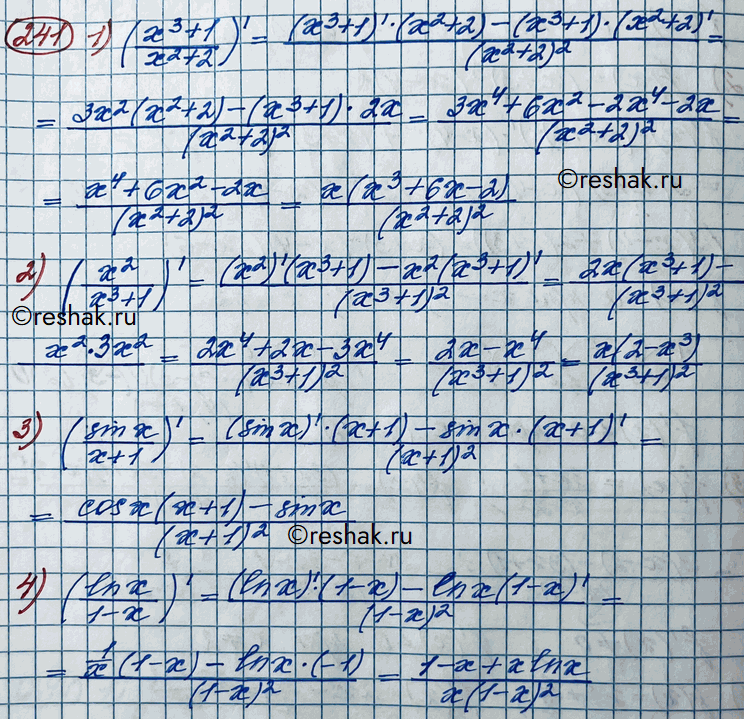 241 1) ((x³+1)/(x²+2))' = ((x³+1)'·(x²+2)−(x³+1)·(x²+2)')/(x²+2)² =
= (3x²(x²+2)−(x³+1)·2x)/(x²+2)² = (3x⁴+6x²−2x⁴−2x)/(x²+2)² =
= (x⁴+6x²−2x)/(x²+2)² = x(x³+6x−2)/(x²+2)²
©reshak.ru
2) (x²/(x³+1))' = ((x²)'(x³+1)−x²(x³+1)')/(x³+1)² = (2x(x³+1)−)/(x³+1)²
©reshak.ru
x²·3x² = (2x⁴+2x−3x⁴)/(x³+1)² = (2x−x⁴)/(x³+1)² = x(2−x³)/(x³+1)²
3) (sinx/(x+1))' = ((sinx)'·(x+1)−sinx·(x+1)')/(x+1)² =
= (cosx(x+1)−sinx)/(x+1)²
©reshak.ru
4) (lnx/(1−x))' = ((lnx)'·(1−x)−lnx(1−x)')/(1−x)² =
= (1/x(1−x)−lnx·(−1))/(1−x)² = (1−x+xlnx)/(x(1−x)²)